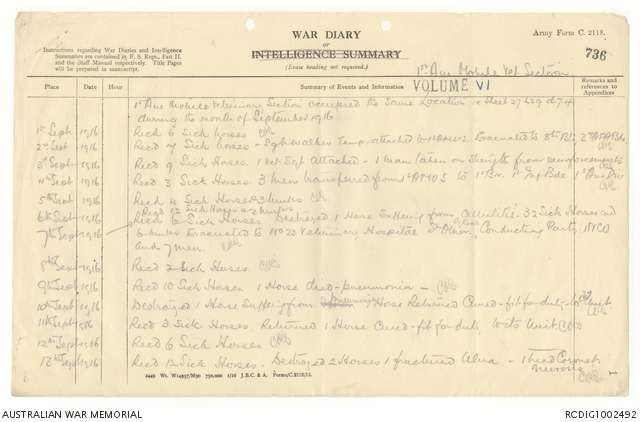 WAR DIARY
Army Form C. 2118.
OR
INTELLIGENCE SUMMARY
736
(Erase heading not required.)
Instructions regarding War Diaries and Intelligence
Summaries are contained in F. S. Regs., Part II.
and the Staff Manual respectively. Title Pages
will be prepared in manuscript.
1st Aus Mobile Vet Section
VOLUME VI
Place Date Hour Summary of Events and Information Remarks and references to Appendices
1st Aus Mobile Veterinary Section occupied the same location Sheet 27 L29
during the month of September 1916
1st Sept 1916 Recd 6 Sick horses
2nd Sept 1916 Recd 4 Sick horses - Sgt Walker Temp attached to Evacuated to
3rd Sept 1916 Recd 9 Sick Horses 1 Vet Sgt Attached - 1 man taken on Strength from reinforcements
4th Sept 1916 Recd 3 Sick Horses 3 men transferred from to 1st Bde 1st Aus Div
5th Sept 1916 Recd 4 Sick Horses & 3 mules
6th Sept 1916 Recd 12 Sick Horses & 2 mules
7th Sept 1916 Recd 2 Sick Horses Destroyed 1 Horse Suffering from 32 Sick Horses and
6 mules Evacuated to No 23 Veterinary Hospital St Omer, Conducting Party NCO
and 7 men
8th Sept 1916 Recd 2 Sick Horses
9th Sept 1916 Recd 10 Sick Horses 1 Horse died - pneumonia -
10th Sept 1916 Destroyed 1 Horse Suffering from Horse Returned Cured - fit for duty to Unit
11th Sept 1916 Recd 3 Sick Horses Returned 1 Horse Cured - fit for duty to its Unit
12th Sept 1916 Recd 6 Sick Horses
13th Sept 1916 Recd 12 Sick Horses - Destroyed 2 Horses 1 fractured Ulna - 1 Coronet
2449 Wt. W14957/M90 750,000 1/16 J.B.C. & A. Forms/C.2118/12.
AUSTRALIAN WAR MEMORIAL
RCDIG1002492